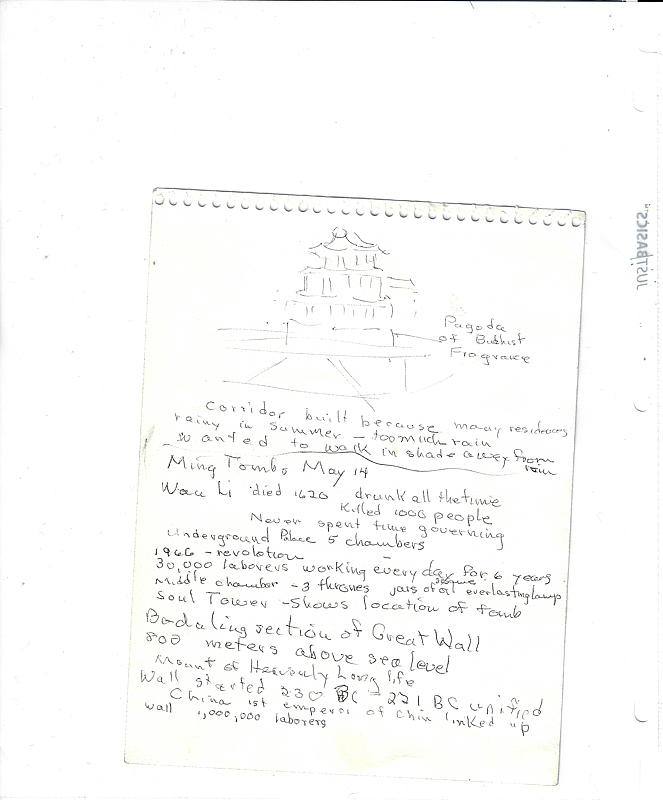 Pagoda
of Budhist
Fragrance
Corridor built because many residences
rainy in summer - too much rain
wanted to walk in shade away from
rain
Ming Tombs May 14
Wau Li died 1620 drunk all the time
Killed 1000 people
Never spent time governing
Underground Palace 5 chambers
1966 - revolution
30,000 laborers working every day for 6 years
Middle chamber - 3 thrones jars of oil everlasting lamp
Soul Tower - shows location of tomb
Badaling section of Great Wall
800 meters above sea level
Mount of Heavenly Long life
Wall started 230 BC - 221 BC unified
China 1st emperor of Chin linked up
wall 1,000,000 laborers
JUSTBASICS